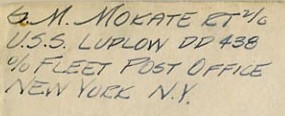 G. M. MOKATE RT 2/c
U.S.S. LUDLOW DD 438
c/o FLEET POST OFFICE
NEW YORK N.Y.